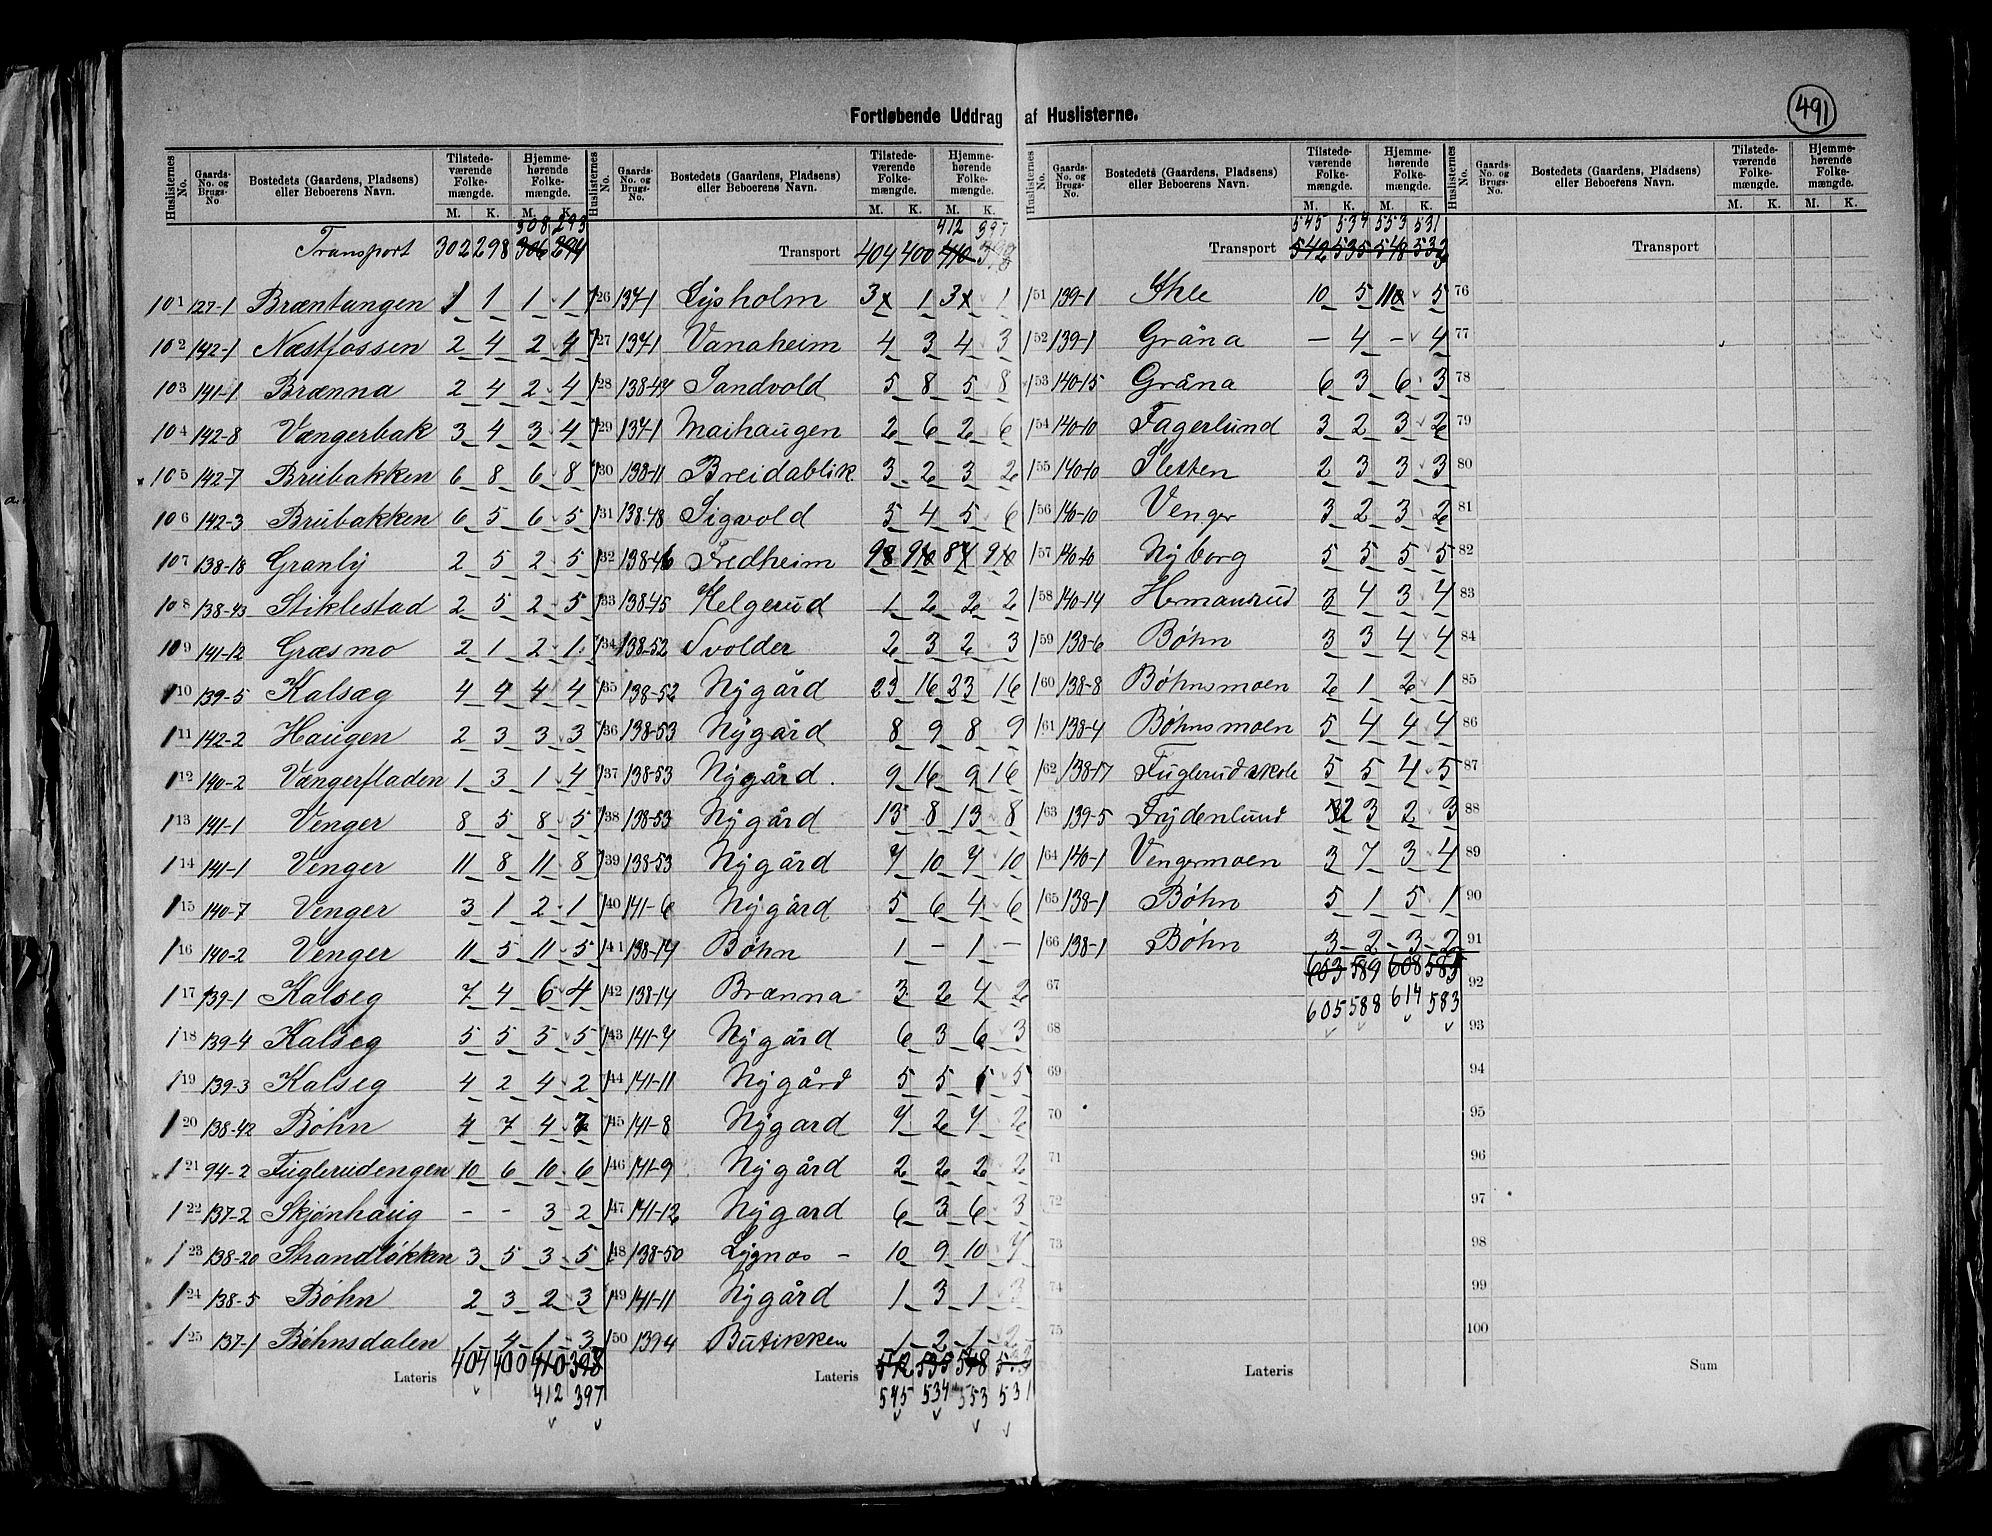 491
Fortløbende Uddrag af Huslisterne.
Huslisternes No. Gaards-No. og Brugs-No Bostedets (Gaardens, Pladsens) eller Beboerens Navn. Tilstedeværende Folkemængde. M. K. Hjemmehørende Folkemængde. M. K.
308 293
Transport 302 298 306 294
101 127-1 Bræntangen 1 1 1 1
102 142-1 Næstfossen 2 4 2 4
103 141-1 Brænna 2 4 2 4
104 142-8 Vængerbak 3 4 3 4
105 142-7 Brubakken 6 8 6 8
106 142-3 Brubakken 6 5 6 5
107 138-18 Granby 2 5 2 5
108 138-43 Stiklestad 2 5 2 5
109 141-12 Græsmo 2 1 2 1
110 139-5 Kalsæg 4 4 4 4
111 142-2 Haugen 2 3 3 3
112 140-2 Vængerfladen 1 3 1 4
113 141-1 Venger 8 5 8 5
114 141-1 Venger 11 8 11 8
115 140-7 Venger 3 1 2 1
116 140-2 Venger 11 5 11 5
117 139-1 Kalseg 7 4 6 4
118 139-4 Kalseg 5 5 5 5
119 139-3 Kalseg 4 2 4 2
120 138-42 Bøhn 4 7 4
121 94-2 Fuglerudengen 10 6 10 6
122 137-2 Skjønhaug - - 3 2
123 138-20 Strandløkken 3 5 3 5
124 138-5 Bøhn 2 3 2 3
125 137-1 Bøhnsdalen 1 4 1 3
Lateris 404 400 410 398
412 397
Huslisternes No. Gaards-No. og Brugs-No. Bostedets (Gaardens, Pladsens) eller Beboerens Navn. Tilstedeværende Folkemængde. M. K. Hjemmehørende Folkemængde. M. K.
412 397
Transport 404 400 410
126 137-1 Lysholm 3 1 3 1
127 137-1 Vanaheim 4 3 4 3
128 138-44 Sandvold 5 8 5 8
129 137-1 Maihaugen 2 6 2 6
130 138-11 Breidablik 3 2 3 2
131 138-48 Sigvold 5 4 5 6
132 138-46 Fredheim 9 9 8 9
133 138-45 Helgerud 1 2 2 2
134 138-52 Svolder 2 3 2 3
135 138-52 Nygård 23 16 23 16
136 138-53 Nygård 8 9 8 9
137 138-53 Nygård. 9 16 9 16
138 138-53 Nygård 13 8 13 8
139 138-53 Nygård 7 10 7 10
140 141-6 Nygård 5 6 4 6
141 138-14 Bøhn 1 - 1 -
142 138-14 Brænna 3 2 4 2
143 141-4 Nygård 6 3 6 3
144 141-11 Nygård 5 5 5 5
145 141-8 Nygard 4 2 4 2
146 141-9 Nygård 2 2 2 2
147 141-12 Nygard 6 3 6 3
148 138-50 Lygnos - 10 9 10
149 141-11 Nygård 1 3 1 3
150 139-4 Butikken 1 2 1 2
Lateris 542 535 548
545 534 553 531
Huslisternes No. Gaards-No. og Brugs-No. Bostedets (Gaardens, Pladsens) eller Beboerens Navn. Tilstedeværende Folkemængde. M. K. Hjemmehørende Folkemængde. M. K.
545 534 553 531
Transport 542 535 548 532
151 139-1 Ihle 10 5 11 5
152 139-1 Gråna - 4 - 4
153 140-15 Gråna 6 3 6 3
154 140-10 Fagerlund 3 2 3 2
155 140-10 Sletten 2 3 3 3
156 140-10 Venger 3 2 3 2
157 140-10 Nyborg 5 5 5 5
158 140-14 Hermansrud 3 4 3 4
159 138-6 Bøhn 3 3 4 4
160 138-8 Bøhnsmoen 2 1 2 1
161 138-4 Bøhnsmoen 5 4 4 4
162 138-17 Fuglerudskole 5 5 4 5
163 139-5 Frydenlund 2 3 2 3
164 140-1 Vengermoen 3 7 3 4
165 138-1 Bøhn 5 1 5 1
166 138-1 Bøhn 3 2 3 2
67 603 589 608 585
605 588 614 583
68
69
70
71
72
73
74
75
Lateris
Huslisternes No. Gaards-No. og Brugs-No Bostedets (Gaardens, Pladsens) eller Beboerens Navn. Tilstedeværende Folkemængde. M. K. Hjemmehørende Folkemængde. M. K.
Transport
76
77
78
79
80
81
82
83
84
85
86
87
88
89
90
91
92
93
94
95
96
97
98
99
100
Sum